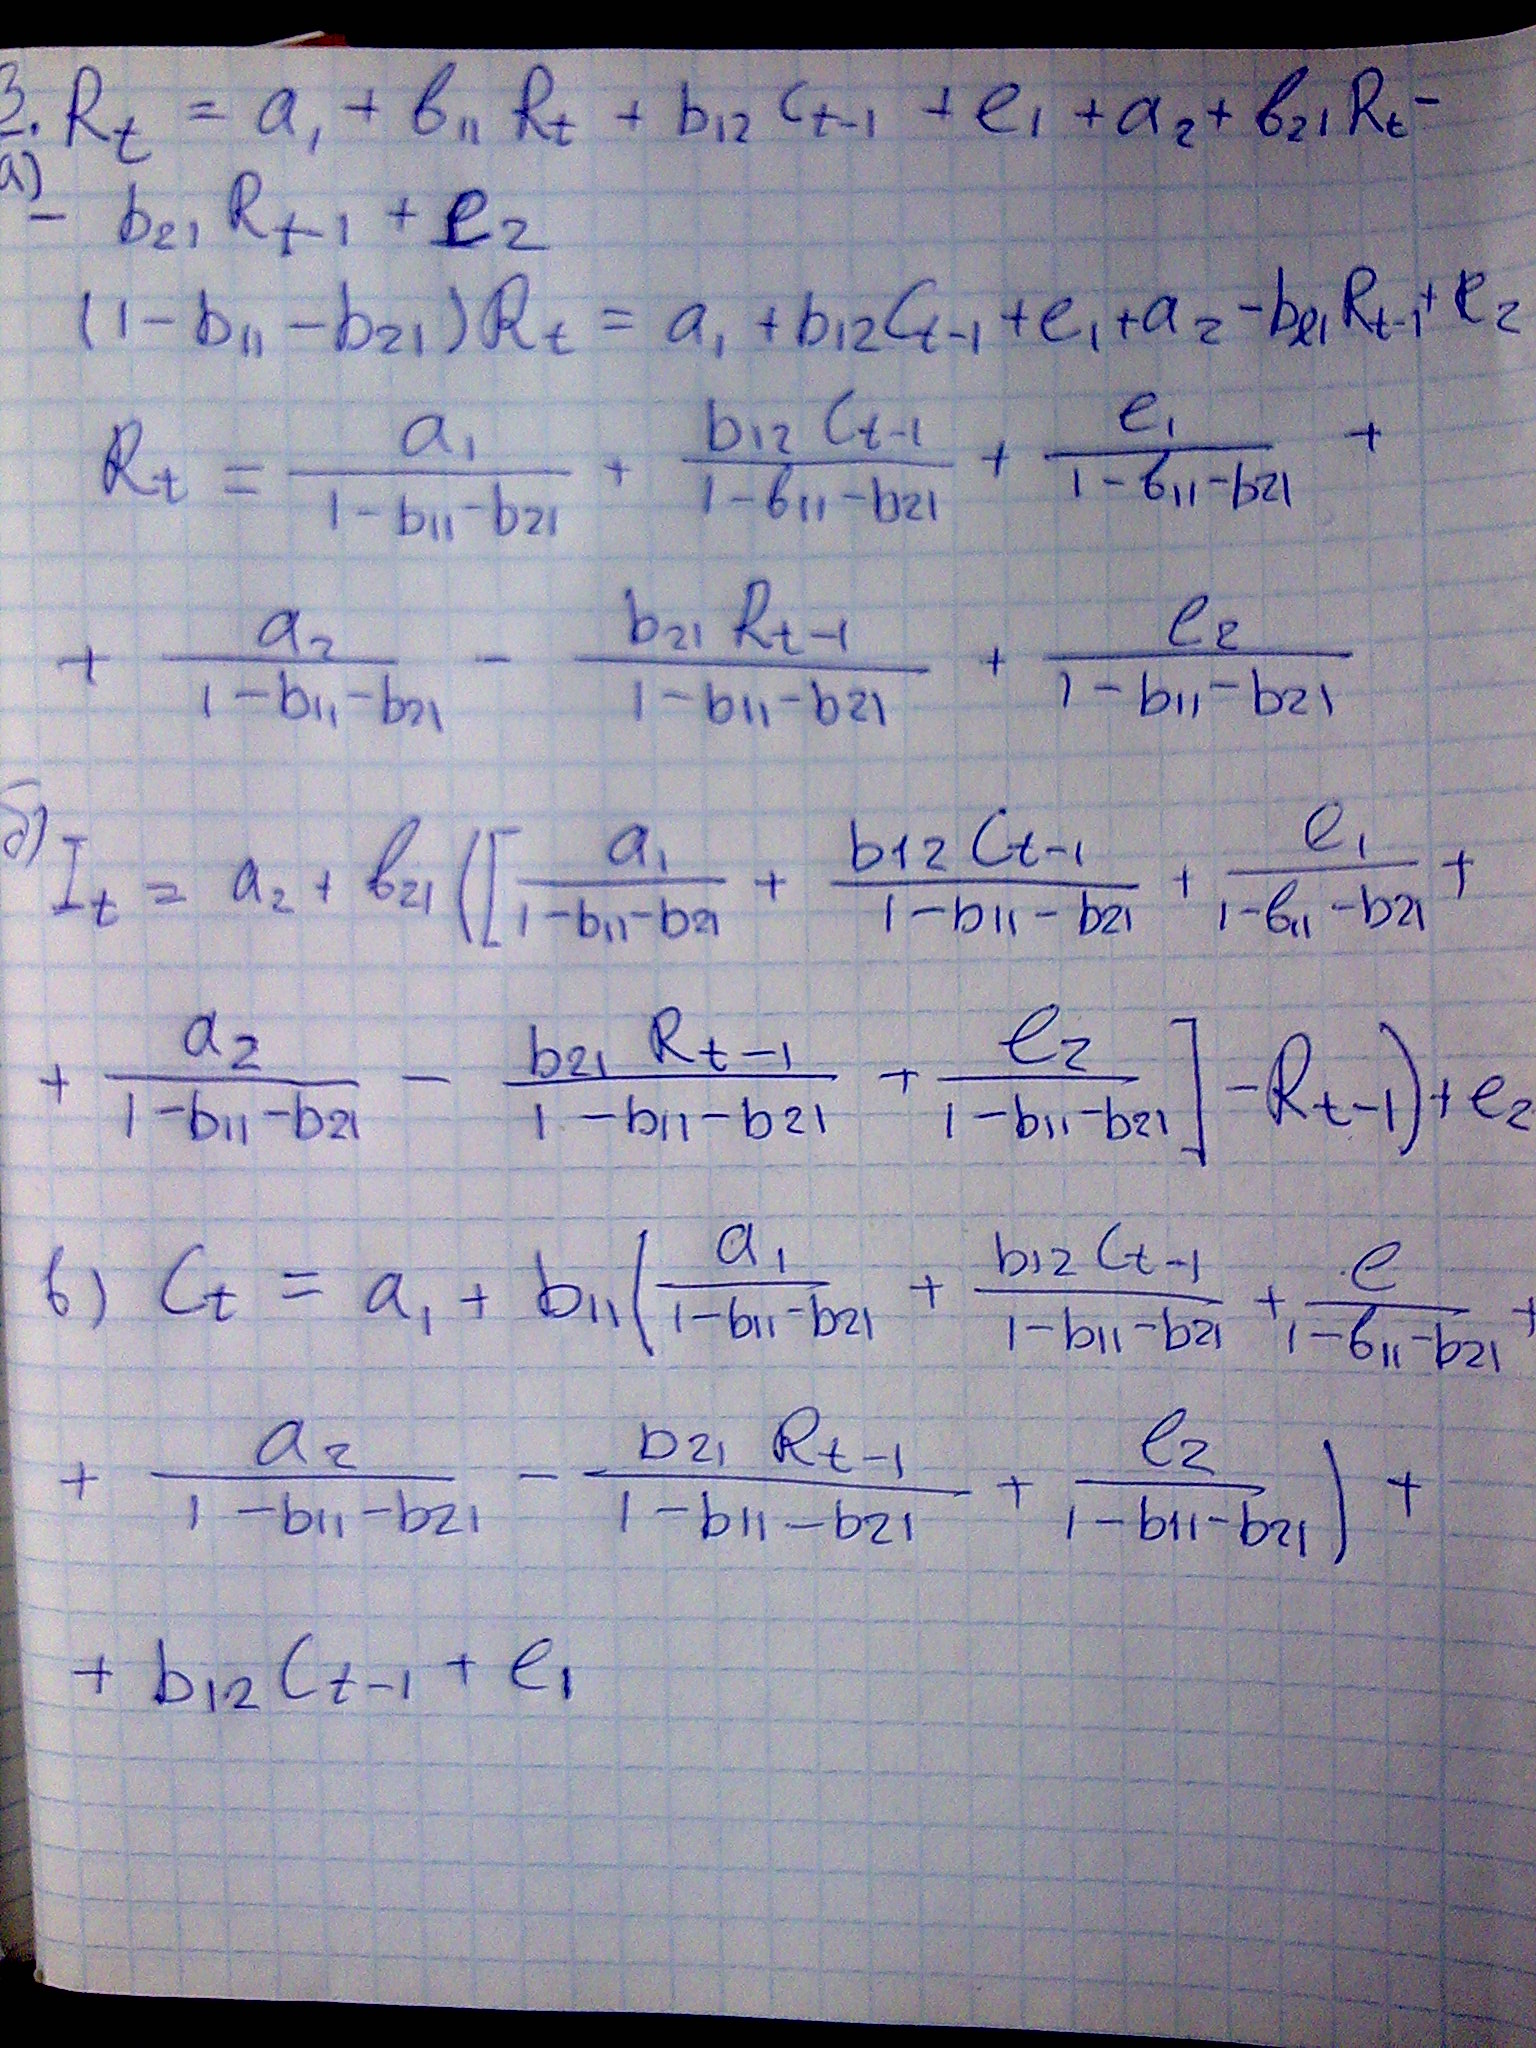 3. R_t = a_1 + b_11 R_t + b_12 C_t-1 + e_1 + a_2 + b_21 R_t -
а) - b_21 R_t-1 + e_2
(1 - b_11 - b_21) R_t = a_1 + b_12 C_t-1 + e_1 + a_2 - b_21 R_t-1 + e_2
R_t = a_1 / (1 - b_11 - b_21) + b_12 C_t-1 / (1 - b_11 - b_21) + e_1 / (1 - b_11 - b_21) +
+ a_2 / (1 - b_11 - b_21) - b_21 R_t-1 / (1 - b_11 - b_21) + e_2 / (1 - b_11 - b_21)
б) I_t = a_2 + b_21 ([ a_1 / (1 - b_11 - b_21) + b_12 C_t-1 / (1 - b_11 - b_21) + e_1 / (1 - b_11 - b_21) +
+ a_2 / (1 - b_11 - b_21) - b_21 R_t-1 / (1 - b_11 - b_21) + e_2 / (1 - b_11 - b_21) ] - R_t-1) + e_2
в) C_t = a_1 + b_11 ( a_1 / (1 - b_11 - b_21) + b_12 C_t-1 / (1 - b_11 - b_21) + e / (1 - b_11 - b_21) +
+ a_2 / (1 - b_11 - b_21) - b_21 R_t-1 / (1 - b_11 - b_21) + e_2 / (1 - b_11 - b_21) ) +
+ b_12 C_t-1 + e_1